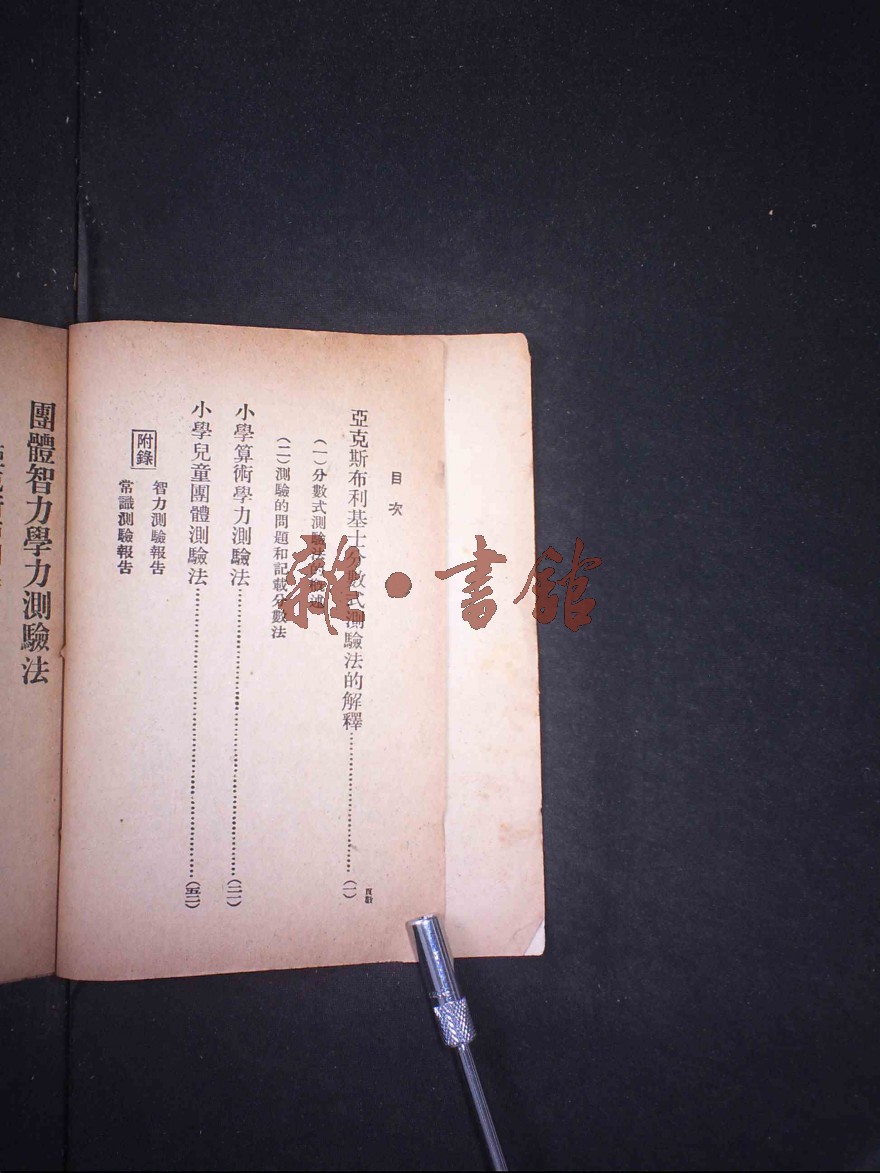 目次
頁數
亞克斯布利基士分數式測驗法的解釋……(一)
(一)分數式測驗法的概述
(二)測驗的問題和記載分數法
小學算術學力測驗法……(二一)
小學兒童團體測驗法……(五一)
附錄
智力測驗報告
常識測驗報告
團體智力學力測驗法
雜·書館